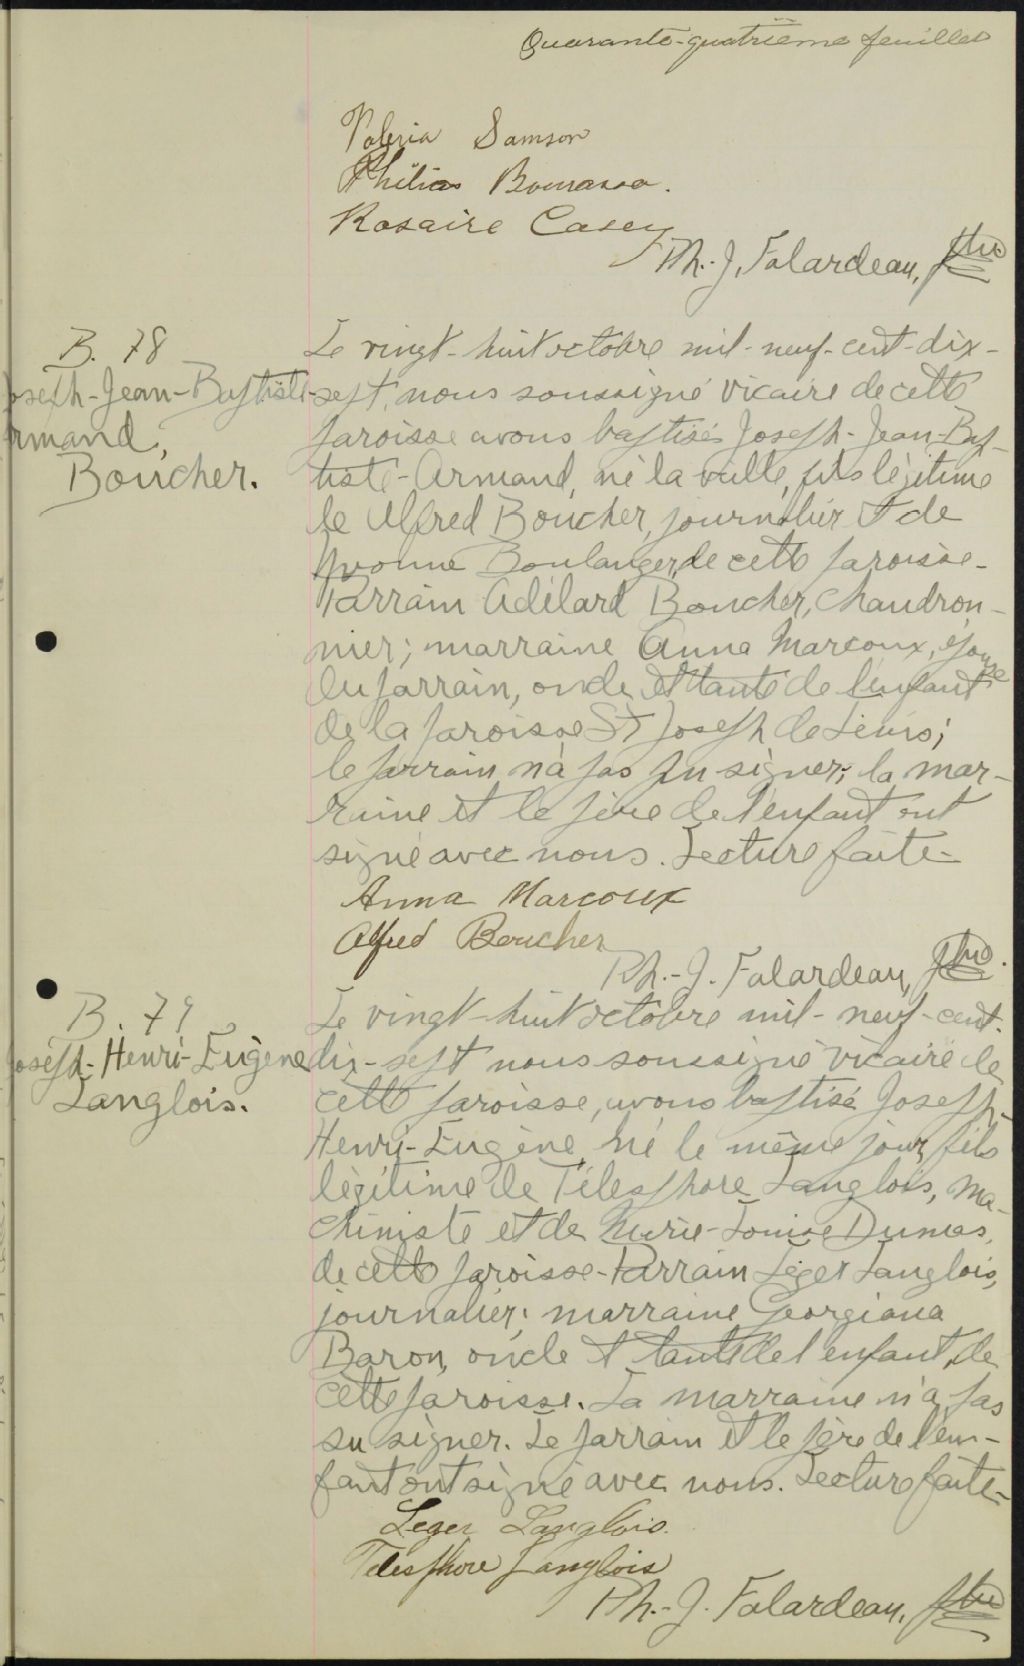 Quarante-quatrième feuillet
Valeria Samson
Philias Bourassa.
Rosaire Casey
Ph.-J. Falardeau, ptre
B. 78
Joseph-Jean-Baptiste-
Armand,
Boucher.
Le vingt-huit octobre mil-neuf-cent-dix-
sept, nous soussigné vicaire de cette
paroisse avons baptisé Joseph-Jean-Bap-
tiste-Armand, né la veille, fils légitime
de Alfred Boucher, journalier et de
Yvonne Boulanger, de cette paroisse-
Parrain Adélard Boucher, chaudron-
nier; marraine Anna Marcoux, épouse
du parrain, oncle et tante de l'enfant
de la paroisse St Joseph de Lévis;
le parrain n'a pas pu signer; la mar-
raine et le père de l'enfant ont
signé avec nous. Lecture faite-
Anna Marcoux
Alfred Boucher
Ph.-J. Falardeau, ptre.
B. 79
Joseph-Henri-Eugène
Langlois.
Le vingt-huit octobre mil-neuf-cent-
dix-sept nous soussigné vicaire de
cette paroisse, avons baptisé Joseph-
Henri-Eugène, né le même jour, fils
légitime de Télesphore Langlois, ma-
chiniste et de Marie-Louise Dumas,
de cette paroisse-Parrain Léger Langlois,
journalier; marraine Georgiana
Baron, oncle et tante de l'enfant, de
cette paroisse. La marraine n'a pas
su signer. Le parrain et le père de l'en-
fant ont signé avec nous. Lecture faite-
Leger Langlois.
Telesphore Langlois
Ph.-J. Falardeau, ptre